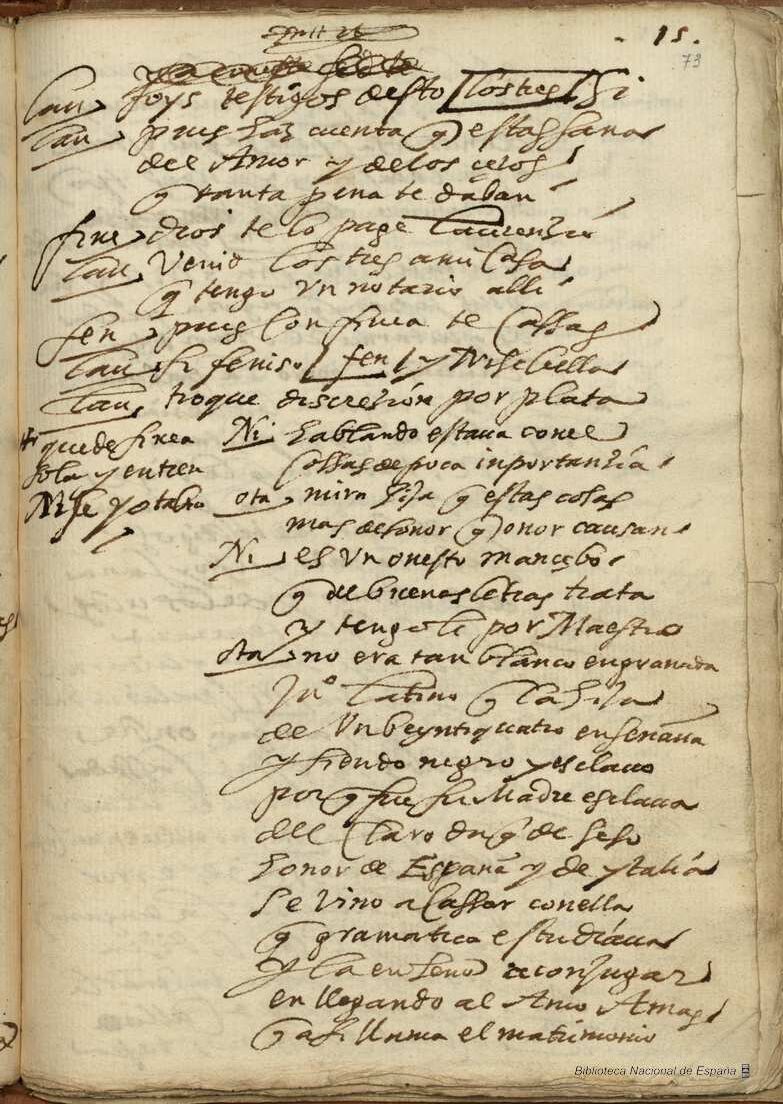 15.
73
Lau soys testigos desto los tres si
Lau pues haz cuenta q estas sana
del Amor y de los çelos
q tanta pena te daban
fine dios te lo page laurenzio
Lau Venid los tres a mi Casa
q tengo un notario alli
fen pues con finea te Cassas
Lau si feniso fen y Nise bella
Lau troque discrezion por plata
quede finea
sola y entren
Nise y otabio
Ni hablando estaua con el
Cossas de poca inportanzia
ota mira hija q estas cosas
mas desonor q onor causan
Ni es un onesto mancebo
q de buenas letras trata
y tengole por Maestro
ota no era tan blanco en granada
Juº latino q la hija
de Un beyntiquatro enseñaua
y siendo negro y esclauo
por q fue su Madre esclaua
del Claro duq de seso
honor de España y de ytalia
se vino a Cassar con ella
q gramatica estudiaua
y la enseño a conjugar
en llegando al Amo Amas
q asi llama el matrimonio
Biblioteca Nacional de España